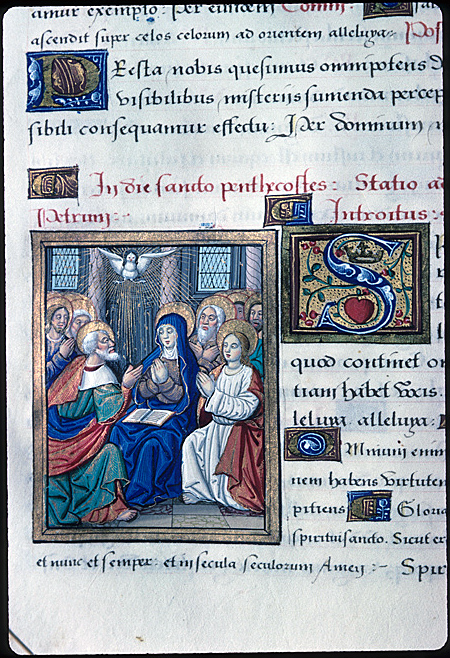 amur exemplo: Per eundem Comm̄
ascendit super celos celorum ad orientem alleluya Pos
PResta nobis quesumus omnipotens d
visibilibus misterijs sumenda percep
sibili consequamur effectu: Per dominum
In die sancto penthecostes: Statio ad
Petrum: Introitus: s
S
quod continet or
tiam habet vocis.
leluya. alleluya:
Omnium enim
nem habens virtutem
pitiens Gloria
spirituisancto. Sicut er
et nunc et semper: et in secula seculorum Amen: Spir